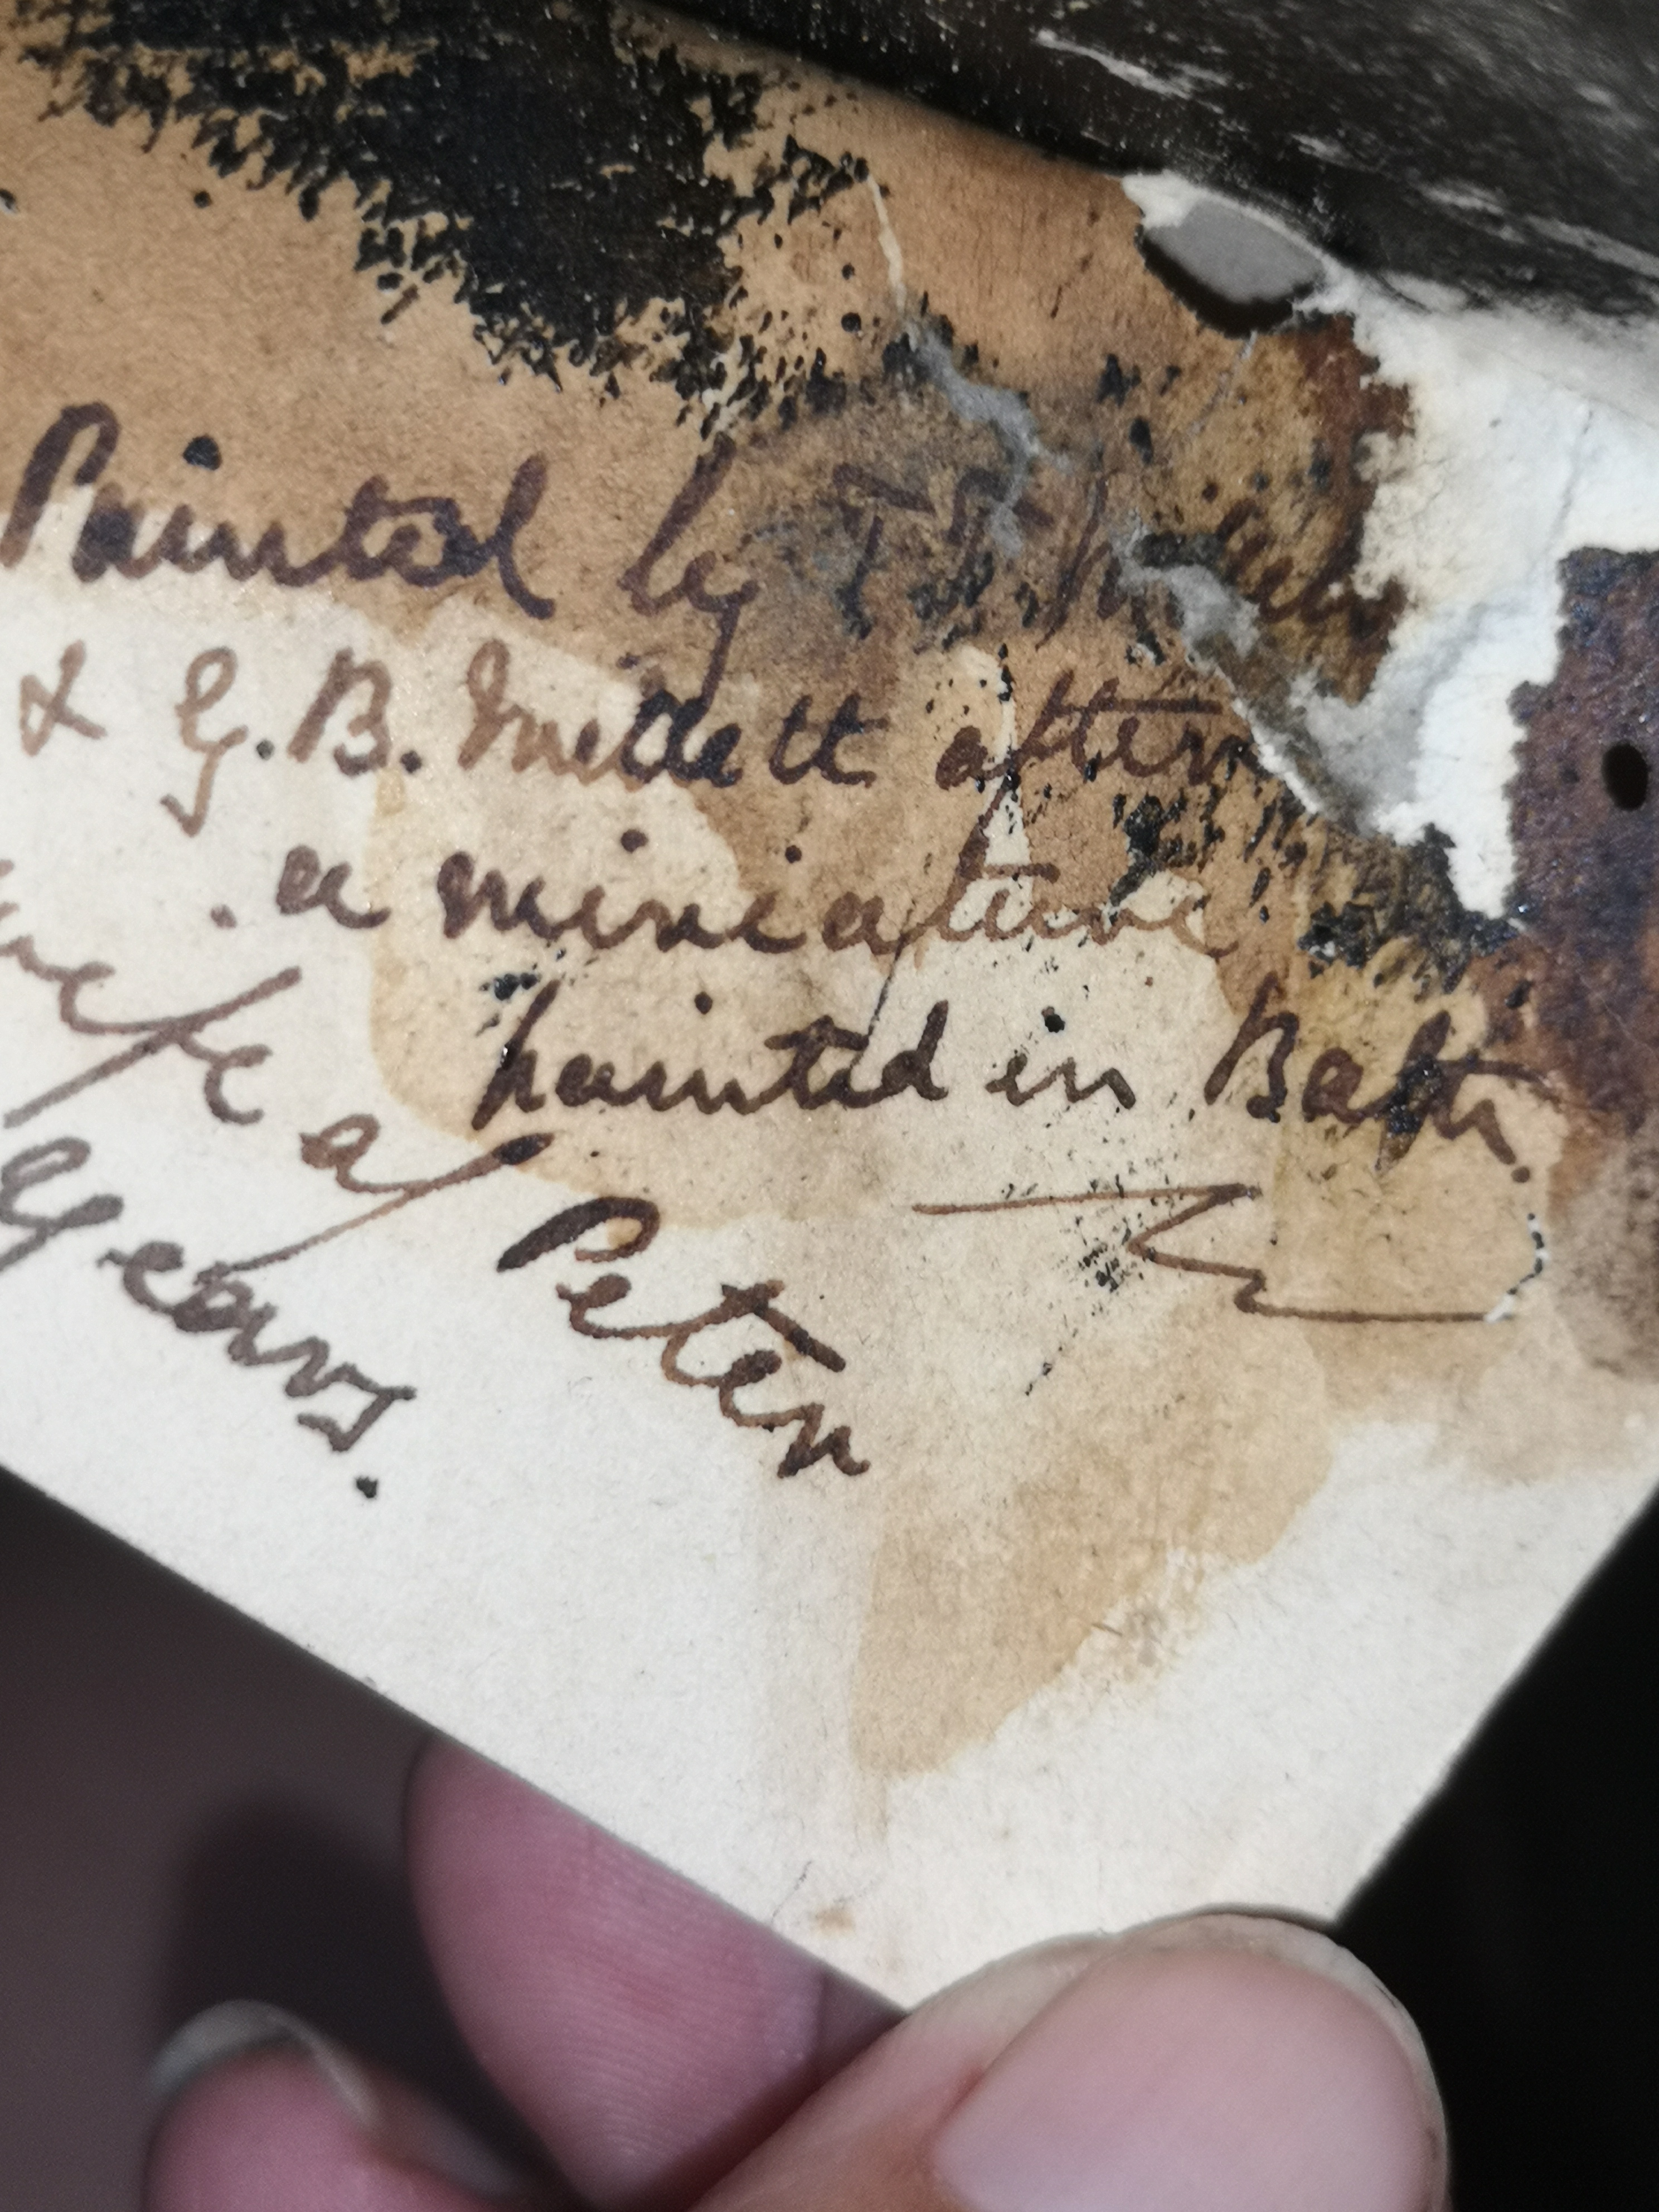 Painted by T.
& G.B. Millett after
a miniature
painted in Bath.
wife of Peter
years.